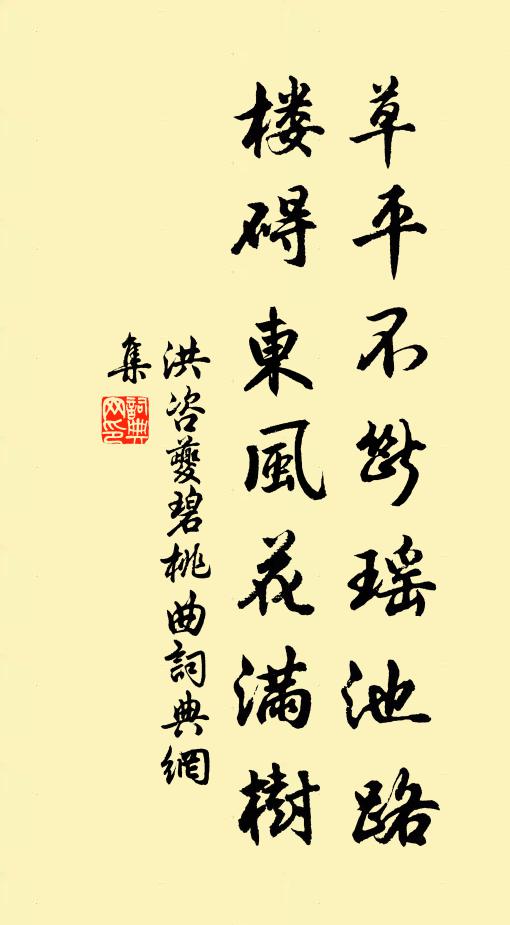 草平不斷瑶池路
楼碍東風花满樹
洪咨夔碧桃曲詞典網
集
詞典
网印